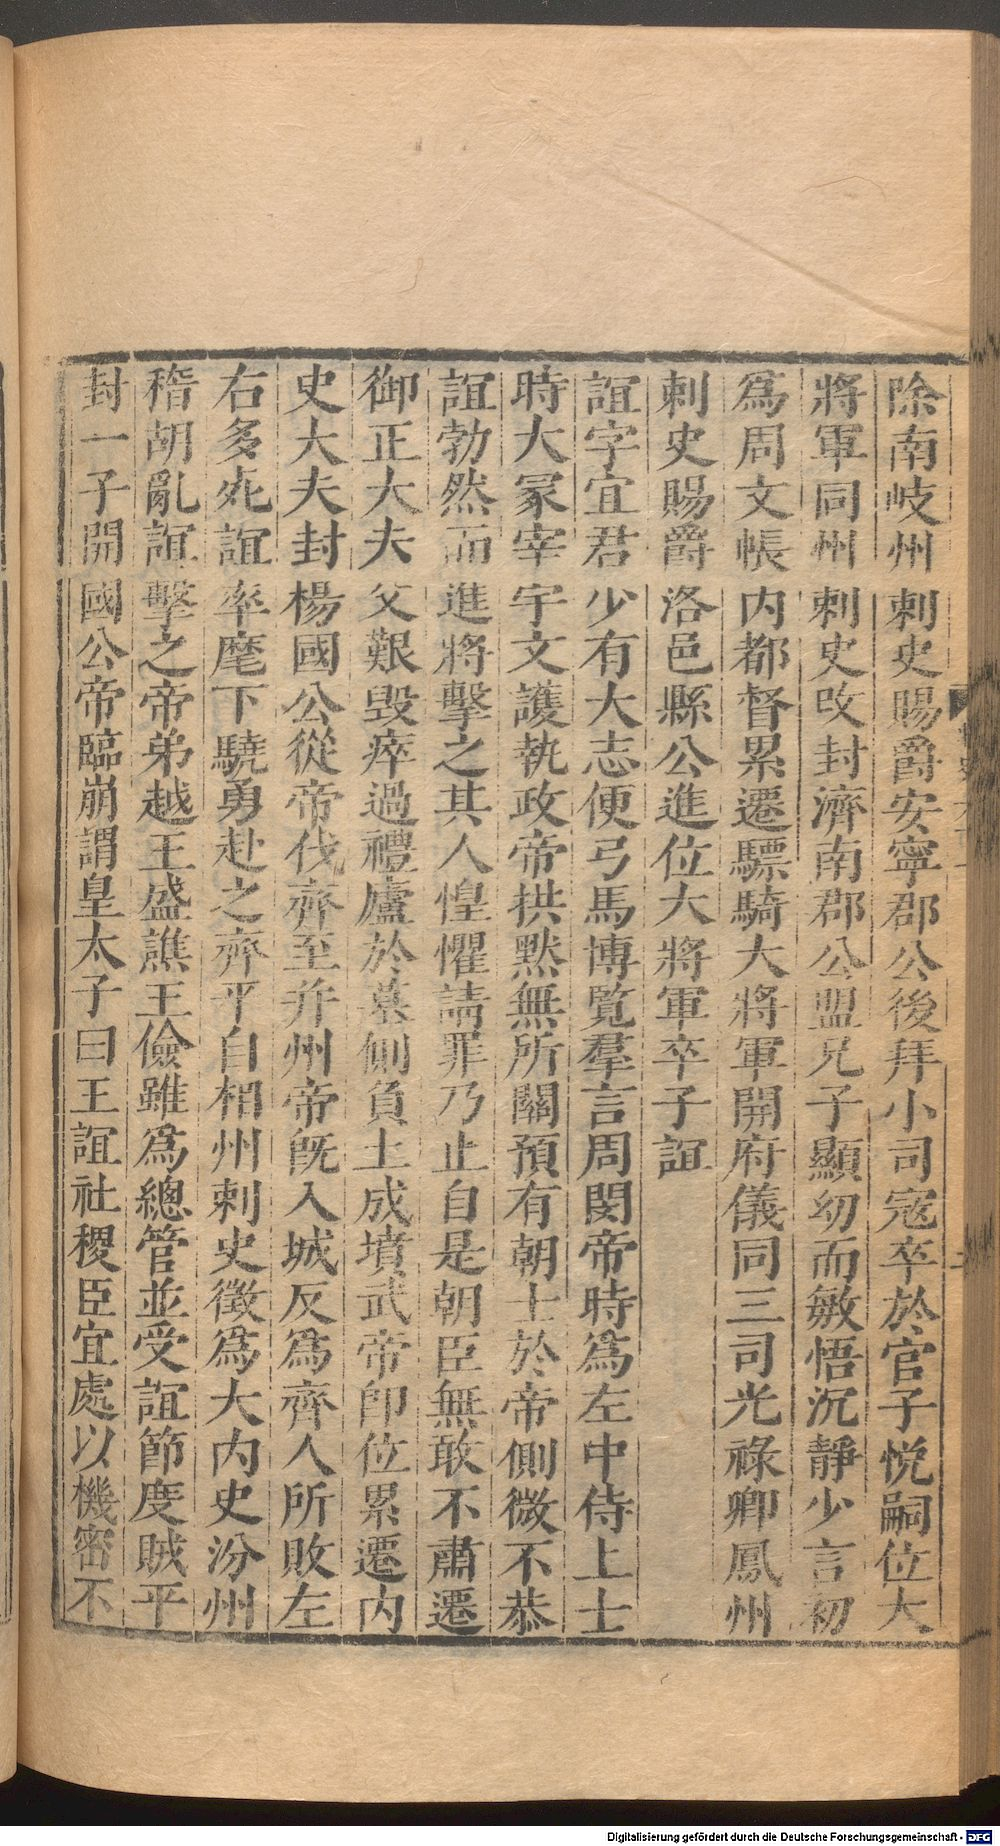 除南岐州刺史賜爵安寧郡公後拜小司寇卒於官子悅嗣位大
將軍同州刺史改封濟南郡公盟兄子顯幼而敏悟沉靜少言初
爲周文帳内都督累遷驃騎大將軍開府儀同三司光祿卿鳳州
刺史賜爵洛邑縣公進位大將軍卒子誼
誼字宜君少有大志便弓馬博覧羣言周閔帝時爲左中侍上士
時大冢宰宇文護執政帝拱默無所關預有朝士於帝側微不恭
誼勃然而進將擊之其人惶懼請罪乃止自是朝臣無敢不肅遷
御正大夫父艱毀瘁過禮廬於墓側負土成墳武帝卽位累遷内
史大夫封楊國公從帝伐齊至并州帝旣入城反爲齊人所敗左
右多死誼率麾下驍勇赴之齊平自相州刺史徵爲大内史汾州
稽胡亂誼擊之帝弟越王盛譙王儉雖爲總管並受誼節度賊平
封一子開國公帝臨崩謂皇太子曰王誼社稷臣宜處以機密不
Digitalisierung gefördert durch die Deutsche Forschungsgemeinschaft - DFG